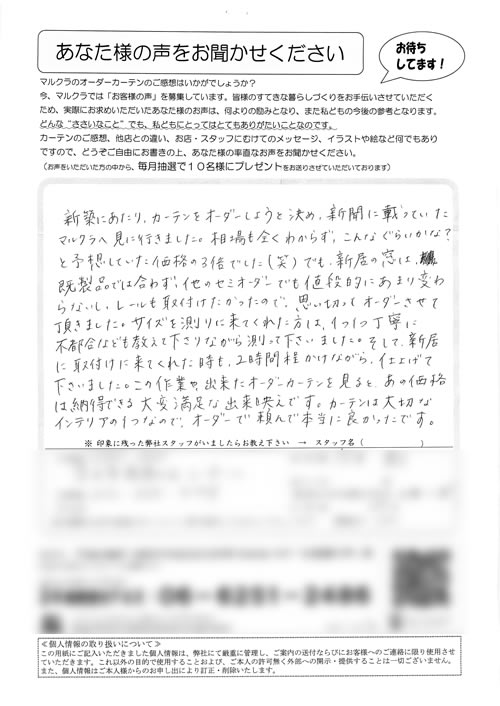 あなた様の声をお聞かせください
お待ち
してます！
マルクラのオーダーカーテンのご感想はいかがでしょうか？
今、マルクラでは「お客様の声」を募集しています。皆様のすてきな暮らしづくりをお手伝いさせていただく
ため、実際にお求めいただいたあなた様のお声は、何よりの励みとなり、また私どもの今後の参考となります。
どんな“ささいなこと”でも、私どもにとってはとてもありがたいことなのです。
カーテンのご感想、他店との違い、お店・スタッフにむけてのメッセージ、イラストや絵など何でもあり
ですので、どうぞご自由にお書きの上、あなた様の率直なお声をお聞かせください。
（お声をいただいた方の中から、毎月抽選で１０名様にプレゼントをお送りさせていただいております）
新築にあたり、カーテンをオーダーしようと決め、新聞に載っていた
マルクラへ見に行きました。相場も全くわからず、こんなぐらいかな？
と予想していた価格の3倍でした（笑）でも、新居の窓は、
既製品では合わず、他のセミオーダーでも値段的にあまり変わ
らないし、レールも取付けたかったので、思い切ってオーダーさせて
頂きました。サイズを測りに来てくれた方は、1つ1つ丁寧に
不都合なども教えて下さりながら測って下さいました。そして、新居
に取付けに来てくれた時も、2時間程かけながら、仕上げて
下さいました。この作業や、出来たオーダーカーテンを見ると、あの価格
は納得できる大変満足な出来映えです。カーテンは大切な
インテリアの1つなので、オーダーで頼んで本当に良かったです。
※ 印象に残った弊社スタッフがいましたらお教え下さい → スタッフ名（ ）
06-6251-2486
≪個人情報の取り扱いについて≫
この用紙にご記入いただきました個人情報は、弊社にて厳重に管理し、ご案内の送付ならびにお客様へのご連絡に限り使用させ
ていただきます。これ以外の目的で使用することおよび、ご本人の許可無く外部への開示・提供することは一切ございません。
また、個人情報はご本人様からのお申し出により訂正・削除いたします。